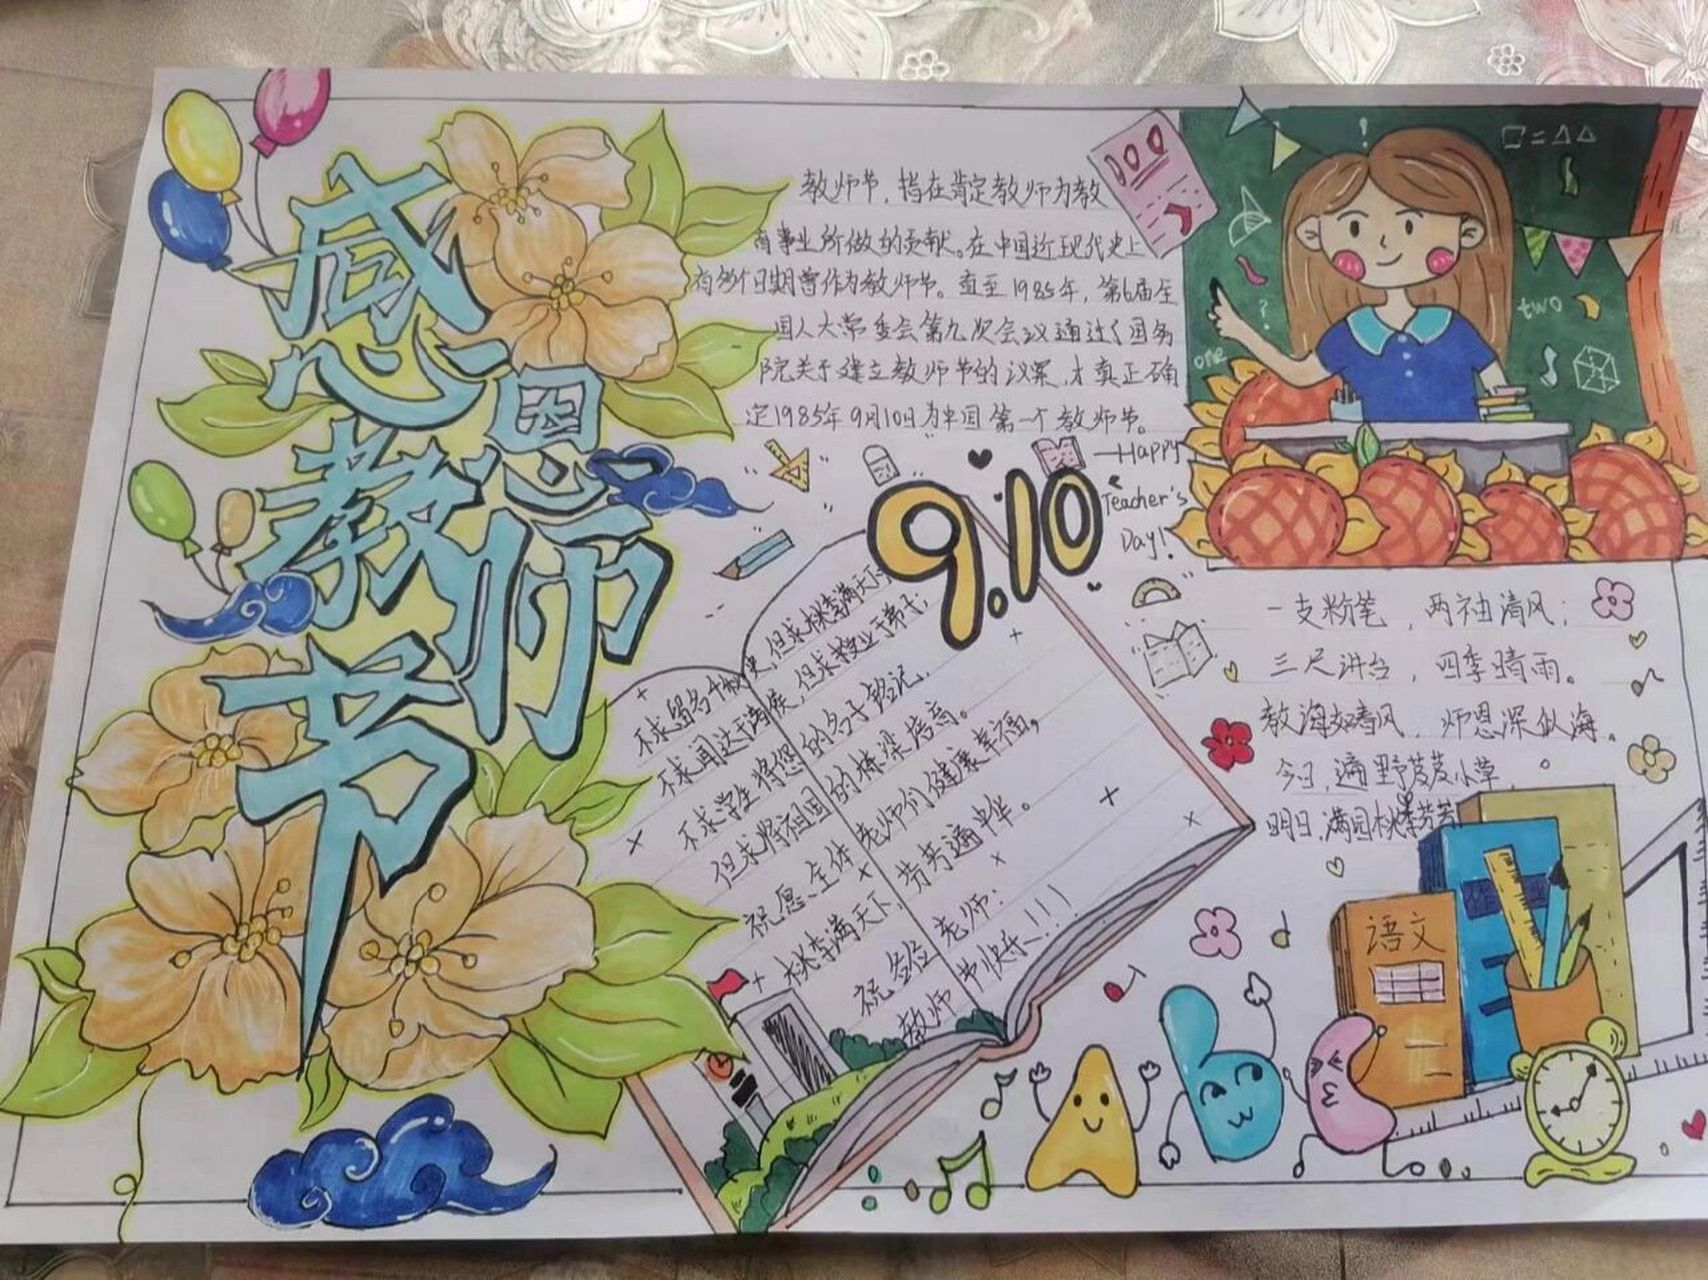 感恩
教师
节
教师节，指在肯定教师为教
育事业所做的贡献。在中国近现代史上
有多个日期曾作为教师节。直至1985年，第6届全
国人大常委会第九次会议通过了国务
院关于建立教师节的议案，才真正确
定1985年9月10日为中国第一个教师节。
100
□=△△
?
two
one
9.10
Happy
Teacher's
Day!
不求留名千秋史，但求桃李满天下
不求闻达于诸侯，但求授业于弟子；
不求学生将您的名字铭记，
但求将祖国的栋梁培育。
祝愿全体老师们健康幸福，
桃李满天下，芳芳遍中华。
祝各位老师：
教师节快乐!!!
一支粉笔，两袖清风；
三尺讲台，四季晴雨。
教诲如春风，师恩深似海。
今日，遍野芨芨小草
明日，满园桃李芬芳
语文
一
A b C